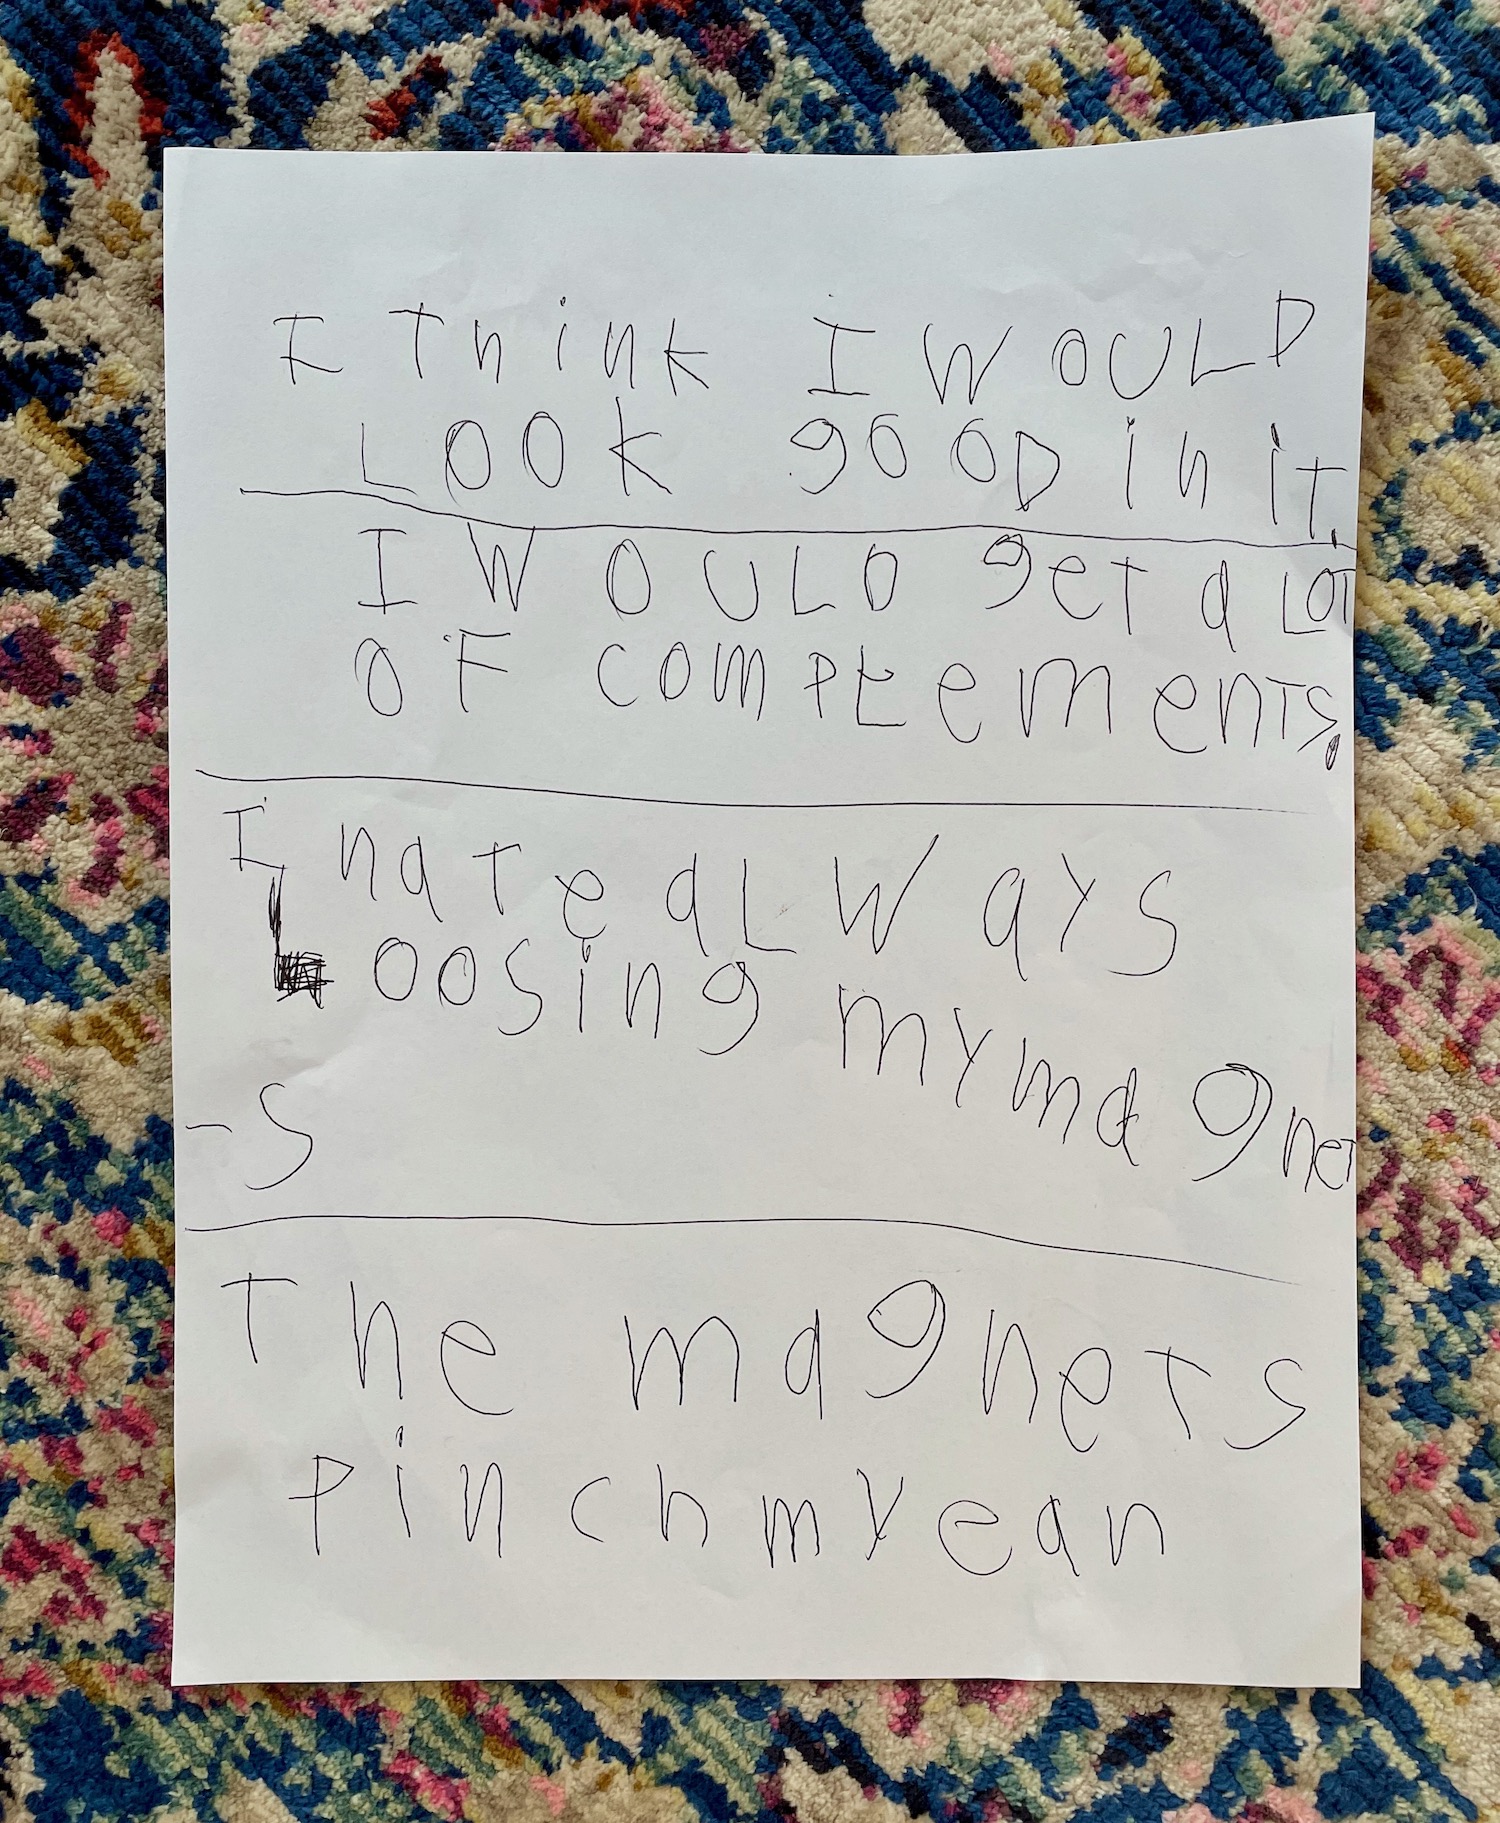 I Think I WOULD
LOOK gOOD in iT.
I WOULD geT a LOT
OF compLements.
I haTe aLWays
Loosing my magneT
-S
The magneTs
Pinch my ear